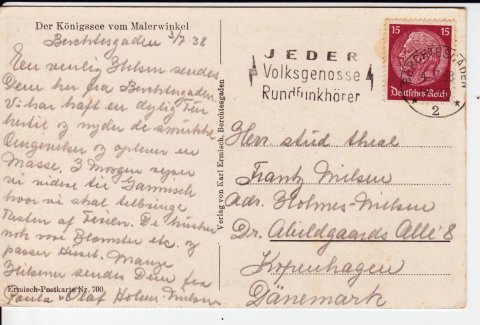 Der Königssee vom Malerwinkel
Berchtesgaden 3/7 38
En venlig Hilsen sendes
Dem her fra Berchtesgaden.
Vi har haft en dejlig Tur
hertil og nyder de smukke
Omgivelser og oplever en
Masse. 3 Morgen rejser
vi videre til Garmisch
hvor vi skal tilbringe
Resten af Ferien. De husker
nok vore Blomster etc. og
passer Huset. Mange
Hilsener sendes Dem fra
Paula & Olaf Holme-Nielsen
Ermisch-Postkarte Nr. 700
Verlag von Karl Ermisch, Berchtesgaden
JEDER
Volksgenosse
Rundfunkhörer
BERCHTESGADEN
2
15 15
Deutsches Reich
Herr stud theol
Frantz Nielsen
Adr. Holmes-Nielsen
Dr. Abildgaards Allé 8
Kopenhagen
Dänemark